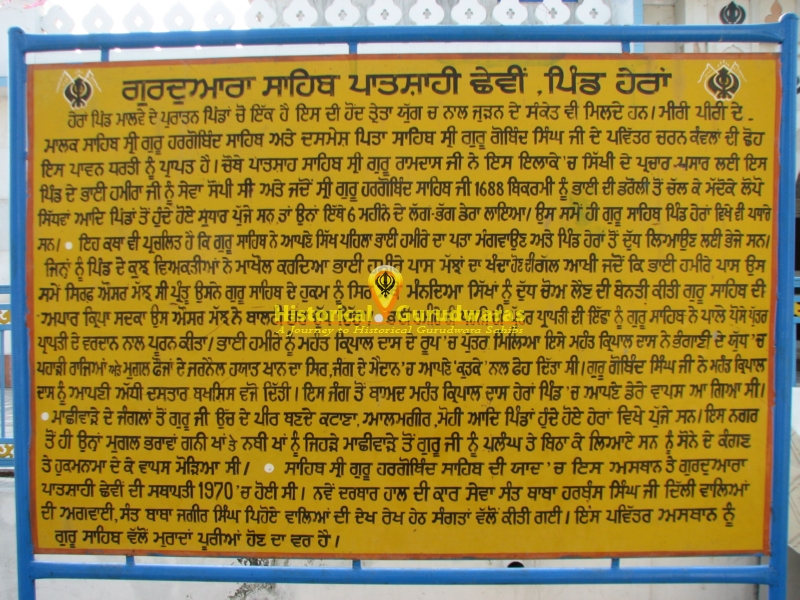 ਗੁਰਦੁਆਰਾ ਸਾਹਿਬ ਪਾਤਸ਼ਾਹੀ ਛੇਵੀਂ, ਪਿੰਡ ਹੇਰਾਂ
ਹੇਰਾਂ ਪਿੰਡ ਮਾਲਵੇ ਦੇ ਪੁਰਾਤਨ ਪਿੰਡਾਂ ਚੋ ਇੱਕ ਹੈ ਇਸ ਦੀ ਹੋਂਦ ਤ੍ਰੇਤਾ ਯੁੱਗ ਚ ਨਾਲ ਜੁੜਨ ਦੇ ਸੰਕੇਤ ਵੀ ਮਿਲਦੇ ਹਨ। ਮੀਰੀ ਪੀਰੀ ਦੇ -
ਮਾਲਕ ਸਾਹਿਬ ਸ੍ਰੀ ਗੁਰੂ ਹਰਗੋਬਿੰਦ ਸਾਹਿਬ ਅਤੇ ਦਸਮੇਸ਼ ਪਿਤਾ ਸਾਹਿਬ ਸ੍ਰੀ ਗੁਰੂ ਗੋਬਿੰਦ ਸਿੰਘ ਜੀ ਦੇ ਪਵਿੱਤਰ ਚਰਨ ਕੰਵਲਾਂ ਦੀ ਛੋਹ
ਇਸ ਪਾਵਨ ਧਰਤੀ ਨੂੰ ਪ੍ਰਾਪਤ ਹੈ। ਚੌਥੇ ਪਾਤਸ਼ਾਹ ਸਾਹਿਬ ਸ੍ਰੀ ਗੁਰੂ ਰਾਮਦਾਸ ਜੀ ਨੇ ਇਸ ਇਲਾਕੇ 'ਚ ਸਿੱਖੀ ਦੇ ਪ੍ਰਚਾਰ-ਪਸਾਰ ਲਈ ਇਸ
ਪਿੰਡ ਦੇ ਭਾਈ ਹਮੀਰਾ ਜੀ ਨੂੰ ਸੇਵਾ ਸੌਂਪੀ ਸੀ ਅਤੇ ਜਦੋਂ ਸ੍ਰੀ ਗੁਰੂ ਹਰਗੋਬਿੰਦ ਸਾਹਿਬ ਜੀ 1688 ਬਿਕਰਮੀ ਨੂੰ ਭਾਈ ਦੀ ਡਰੋਲੀ ਤੋਂ ਚੱਲ ਕੇ ਮੱਦੋਕੇ ਲੋਪੋ
ਸਿੱਧਵਾਂ ਆਦਿ ਪਿੰਡਾਂ ਤੋਂ ਹੁੰਦੇ ਹੋਏ ਸੁਧਾਰ ਪੁੱਜੇ ਸਨ, ਤਾਂ ਉਨਾਂ ਇੱਥੇ 6 ਮਹੀਨੇ ਦੇ ਲੱਗ-ਭੱਗ ਡੇਰਾ ਲਾਇਆ। ਉਸ ਸਮੇਂ ਹੀ ਗੁਰੂ ਸਾਹਿਬ ਪਿੰਡ ਹੇਰਾਂ ਵਿਖੇ ਵੀ ਪਧਾਰੇ
ਸਨ। ਇਹ ਕਥਾ ਵੀ ਪ੍ਰਚਲਿਤ ਹੈ ਕਿ ਗੁਰੂ ਸਾਹਿਬ ਨੇ ਆਪਣੇ ਸਿੱਖ ਪਹਿਲਾ ਭਾਈ ਹਮੀਰੇ ਦਾ ਪਤਾ ਮੰਗਵਾਉਣ ਅਤੇ ਪਿੰਡ ਹੇਰਾਂ ਤੋਂ ਦੁੱਧ ਲਿਆਉਣ ਲਈ ਭੇਜੇ ਸਨ।
ਜਿਨ੍ਹਾਂ ਨੂੰ ਪਿੰਡ ਦੇ ਕੁਝ ਵਿਅਕਤੀਆਂ ਨੇ ਮਾਖੌਲ ਕਰਦਿਆ ਭਾਈ ਹਮੀਰੇ ਪਾਸ ਮੱਝਾਂ ਦਾ ਖੰਦਾ ਹੋਣ ਦੀ ਗੱਲ ਆਖੀ ਜਦੋਂ ਕਿ ਭਾਈ ਹਮੀਰੇ ਪਾਸ ਉਸ
ਸਮੇਂ ਸਿਰਫ਼ ਔਸਰ ਮੱਝ ਸੀ ਪ੍ਰੰਤੂ ਉਸਨੇ ਗੁਰੂ ਸਾਹਿਬ ਦੇ ਹੁਕਮ ਨੂੰ ਮੰਨਦਿਆ ਸਿੱਖਾਂ ਨੂੰ ਦੁੱਧ ਚੋਅ ਲੈਣ ਦੀ ਬੇਨਤੀ ਕੀਤੀ ਗੁਰੂ ਸਾਹਿਬ ਦੀ
ਅਪਾਰ ਕਿਪਾ ਸਦਕਾ ਉਸ ਔਸਰ ਮੱਝ ਨੇ ਪ੍ਰਾਪਤੀ ਦੀ ਇੱਛਾ ਨੂੰ ਗੁਰੂ ਸਾਹਿਬ ਨੇ ਪਾਲੇ ਪੋਸੇ ਪੁੱਤਰ
ਪ੍ਰਾਪਤੀ ਦੇ ਵਰਦਾਨ ਨਾਲ ਪੂਰਨ ਕੀਤਾ। ਭਾਈ ਹਮੀਰੇ ਨੂੰ ਮਹੰਤ ਕ੍ਰਿਪਾਲ ਦਾਸ ਦੇ ਰੂਪ 'ਚ ਪੁੱਤਰ ਮਿਲਿਆ ਇਸੇ ਮਹੰਤ ਕਿਪਾਲ ਦਾਸ ਨੇ ਭੰਗਾਣੀ ਦੇ ਯੁੱਧ 'ਚ
ਪਹਾੜੀ ਰਾਜਿਆਂ ਅਤੇ ਮੁਗਲ ਫੌਜਾਂ ਦੇ ਜਰਨੈਲ ਹਯਾਤ ਖਾਨ ਦਾ ਸਿਰ, ਜੰਗ ਦੇ ਮੈਦਾਨ 'ਚ ਆਪਣੇ 'ਕੁੜਕੇ' ਨਾਲ ਫੇਹ ਦਿੱਤਾ ਸੀ। ਗੁਰੂ ਗੋਬਿੰਦ ਸਿੰਘ ਜੀ ਨੇ ਮਹੰਤ ਕਿਪਾਲ
ਦਾਸ ਨੂੰ ਆਪਣੀ ਅੱਧੀ ਦਸਤਾਰ ਬਖਸਿਸ ਵੱਜੋਂ ਦਿੱਤੀ। ਇਸ ਜੰਗ ਤੋਂ ਬਾਅਦ ਮਹੰਤ ਕਿਪਾਲ ਦਾਸ ਹੇਰਾਂ ਪਿੰਡ 'ਚ ਆਪਣੇ ਡੇਰੇ ਵਾਪਸ ਆ ਗਿਆ ਸੀ।
ਮਾਛੀਵਾੜੇ ਦੇ ਜੰਗਲਾਂ ਤੋਂ ਗੁਰੂ ਜੀ ਉਚ ਦੇ ਪੀਰ ਬਣਦੇ ਕਟਾਣਾ, ਆਲਮਗੀਰ, ਮੋਹੀ ਆਦਿ ਪਿੰਡਾਂ ਹੁੰਦੇ ਹੋਏ ਹੇਰਾਂ ਵਿਖੇ ਪੁੱਜੇ ਸਨ। ਇਸ ਨਗਰ
ਤੋਂ ਹੀ ਉਨਾਂ ਮੁਗਲ ਭਰਾਵਾਂ ਗਨੀ ਖਾਂ ਤੇ ਨਬੀ ਖਾਂ ਨੂੰ ਜਿਹੜੇ ਮਾਛੀਵਾੜੇ ਤੋਂ ਗੁਰੂ ਜੀ ਨੂੰ ਪਲੰਘ ਤੇ ਬਿਠਾ ਕੇ ਲਿਆਏ ਸਨ ਨੂੰ ਸੋਨੇ ਦੇ ਕੰਗਣ
ਤੇ ਹੁਕਮਨਾਮਾ ਦੇ ਕੇ ਵਾਪਸ ਮੋੜਿਆ ਸੀ। ਸਾਹਿਬ ਸ੍ਰੀ ਗੁਰੂ ਹਰਗੋਬਿੰਦ ਸਾਹਿਬ ਦੀ ਯਾਦ 'ਚ ਇਸ ਅਸਥਾਨ ਤੇ ਗੁਰਦੁਆਰਾ
ਪਾਤਸ਼ਾਹੀ ਛੇਵੀਂ ਦੀ ਸਥਾਪਤੀ 1970 'ਚ ਹੋਈ ਸੀ। ਨਵੇਂ ਦਰਬਾਰ ਹਾਲ ਦੀ ਕਾਰ ਸੇਵਾ ਸੰਤ ਬਾਬਾ ਹਰਬੰਸ ਸਿੰਘ ਜੀ ਦਿੱਲੀ ਵਾਲਿਆਂ
ਦੀ ਅਗਵਾਈ, ਸੰਤ ਬਾਬਾ ਜਗੀਰ ਸਿੰਘ ਪਿਹੋਏ ਵਾਲਿਆਂ ਦੀ ਦੇਖ ਰੇਖ ਹੇਠ ਸੰਗਤਾਂ ਵੱਲੋਂ ਕੀਤੀ ਗਈ। ਇਸ ਪਵਿੱਤਰ ਅਸਥਾਨ ਨੂੰ
ਗੁਰੂ ਸਾਹਿਬ ਵੱਲੋਂ ਮੁਰਾਦਾਂ ਪੂਰੀਆਂ ਹੋਣ ਦਾ ਵਰ ਹੈ।
Historical Gurudwaras
A Journey to Historical Gurudwara Sahibs